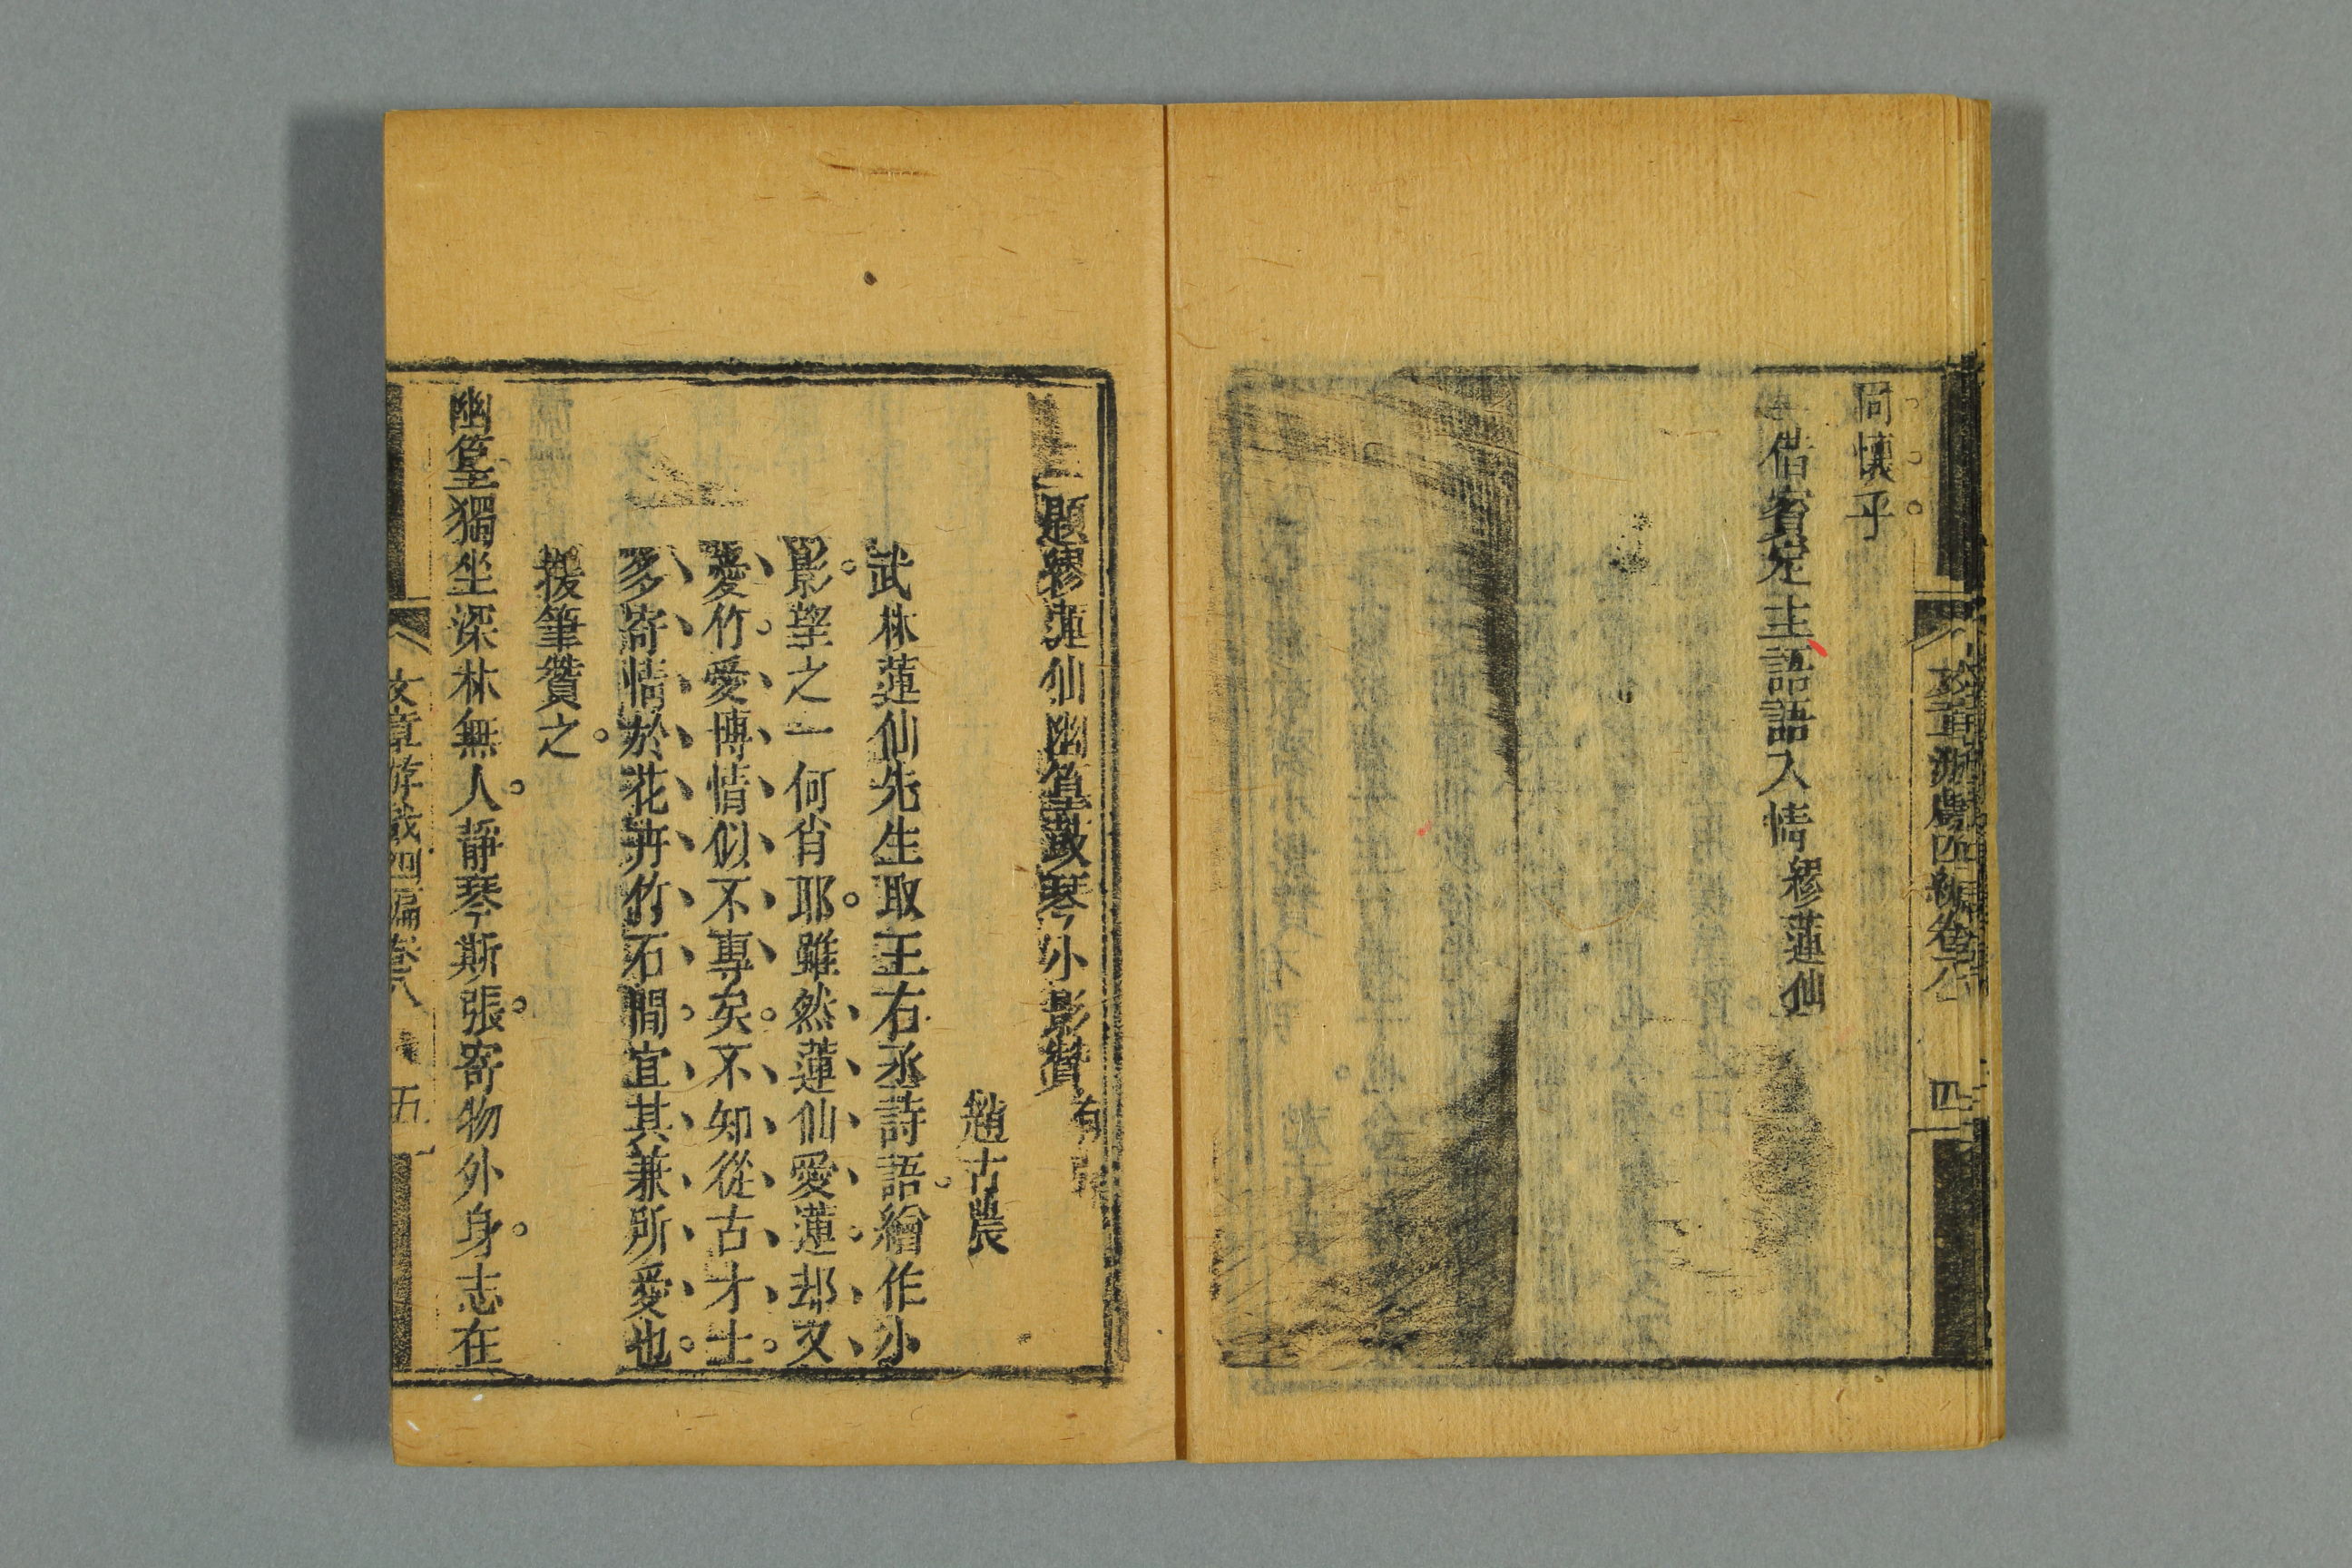 同懷乎
借賓定主語語入情繆蓮仙
文章游戲四編卷八
四
題繆蓮仙幽篁鼓琴小影贊有序
趙古農
武林蓮仙先生取王右丞詩語繪作小
影望之一何肖耶雖然蓮仙愛蓮却又
愛竹愛博情似不專矣不知從古才士
多寄情於花卉竹石間宜其兼所愛也
援筆贊之
幽篁獨坐深林無人靜琴斯張寄物外身志在
文章游戲四編卷八
五